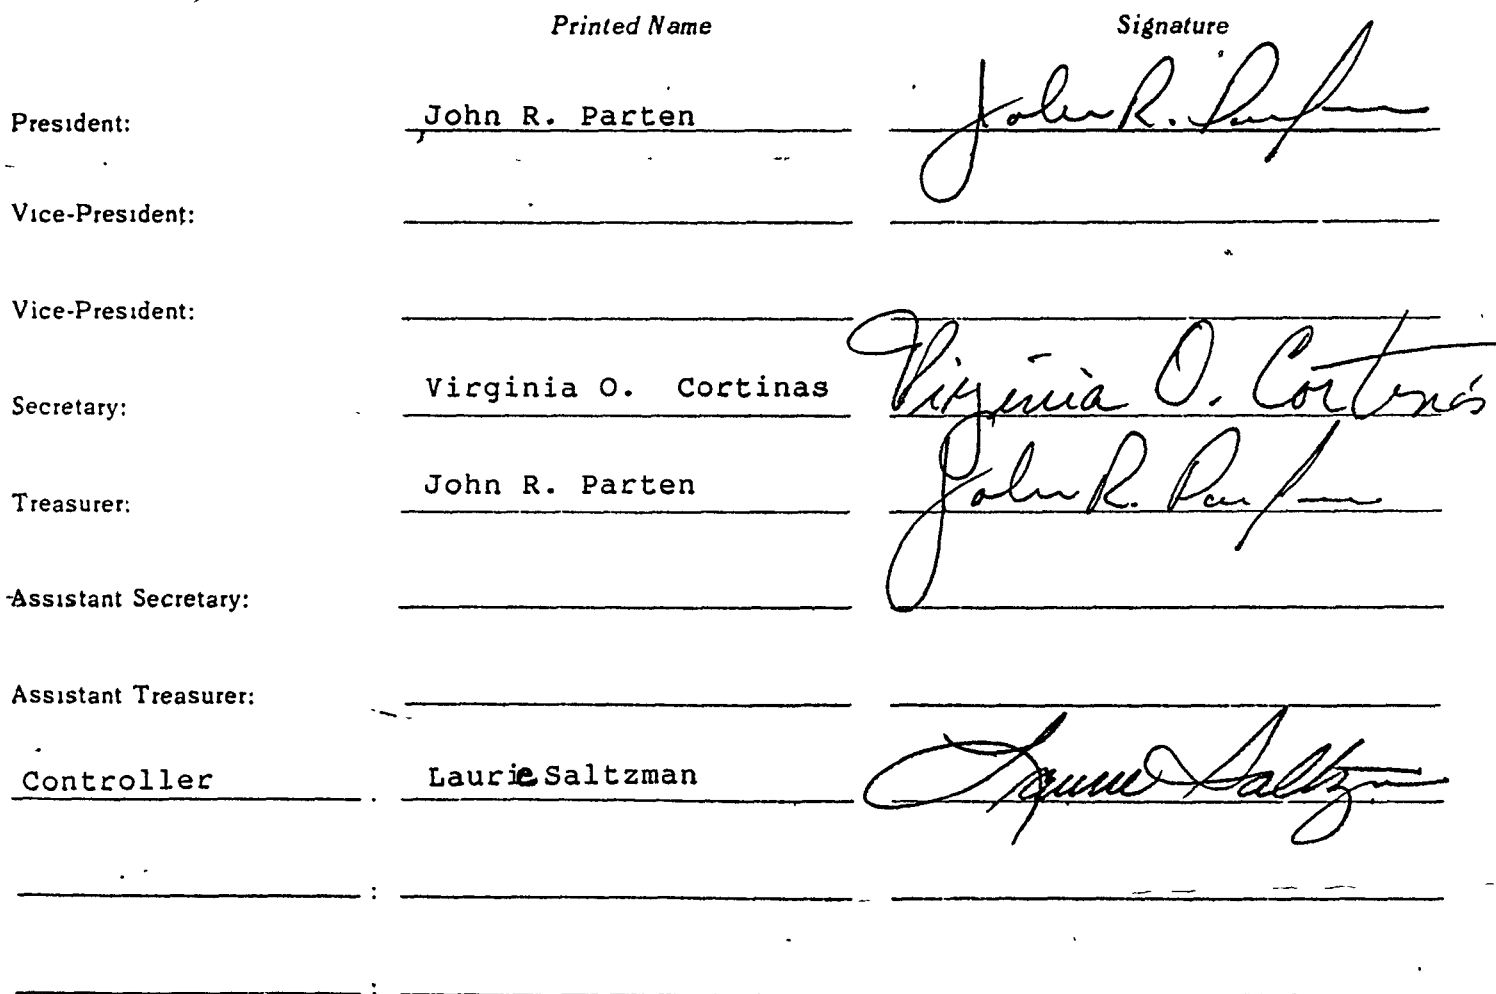 Printed Name Signature
President: John R. Parten John R. Parten
Vice-President:
Vice-President:
Secretary: Virginia O. Cortinas Virginia O. Cortinas
Treasurer: John R. Parten John R. Parten
Assistant Secretary:
Assistant Treasurer:
Controller : Laurie Saltzman Laurie Saltzman
:
: